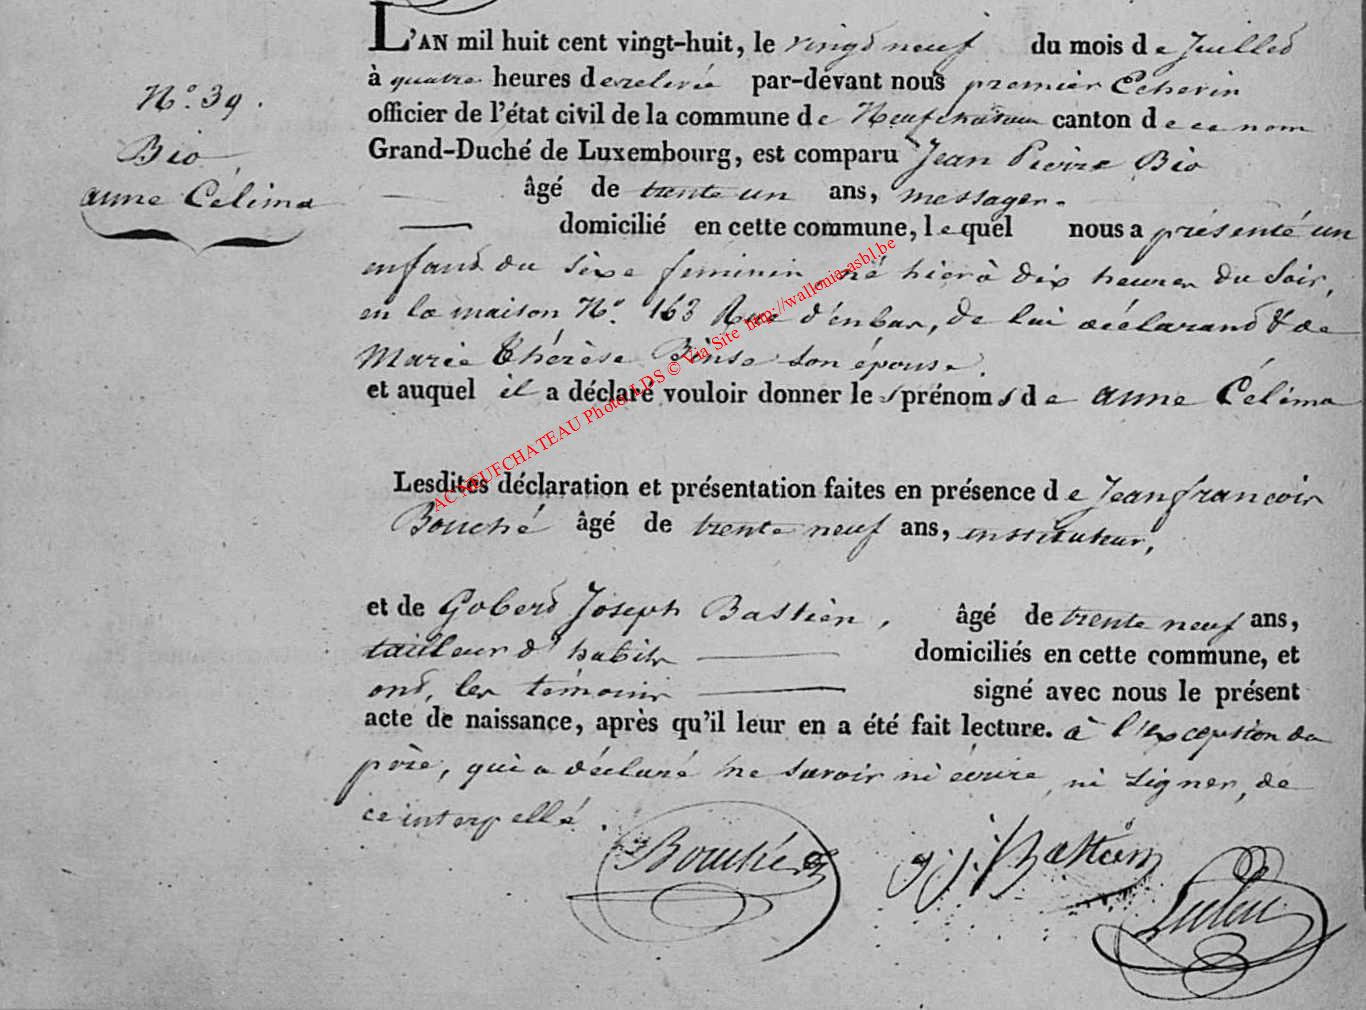 N.° 39.
Bio
anne Célima
L'AN mil huit cent vingt-huit, le vingt neuf du mois de Juillet
à quatre heures de relevée par-devant nous premier Echevin
officier de l'état civil de la commune de Neufchateau canton de ce nom
Grand-Duché de Luxembourg, est comparu Jean Pierre Bio
âgé de trente un ans, messager.
domicilié en cette commune, lequel nous a présenté un
enfant du sèxe feminin, né hier à dix heures du soir,
en la maison N.° 163 Rue d'en bas, de lui déclarant & de
Marie Thérèse son épouse.
et auquel il a déclaré vouloir donner les prénoms de anne Célima
Lesdites déclaration et présentation faites en présence de Jean françois
Bouché âgé de trente neuf ans, instituteur,
et de Gobert Joseph Bastien, âgé de trente neuf ans,
tailleur d'habits domiciliés en cette commune, et
ont, les témoins signé avec nous le présent
acte de naissance, après qu'il leur en a été fait lecture. à l'exception du
père, qui a déclaré ne savoir ni écrire, ni signer, de
ce interpellé.
Bouché
g j. Bastien
AC NEUFCHATEAU Photo LDS © Via Site http://wallonia-asbl.be